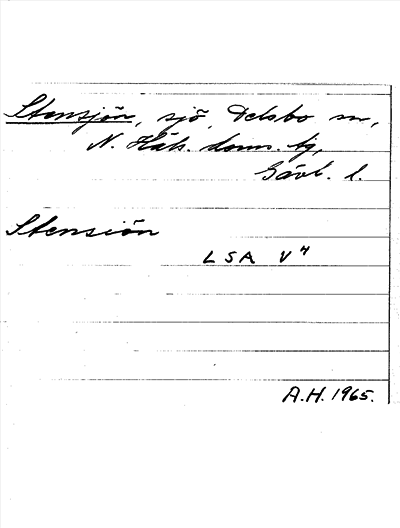 Stensjön, sjö, Delsbo sn,
N. Häls. doms. tg,
Gävl. l.
Stensiön
LSA V⁴
A.H. 1965.